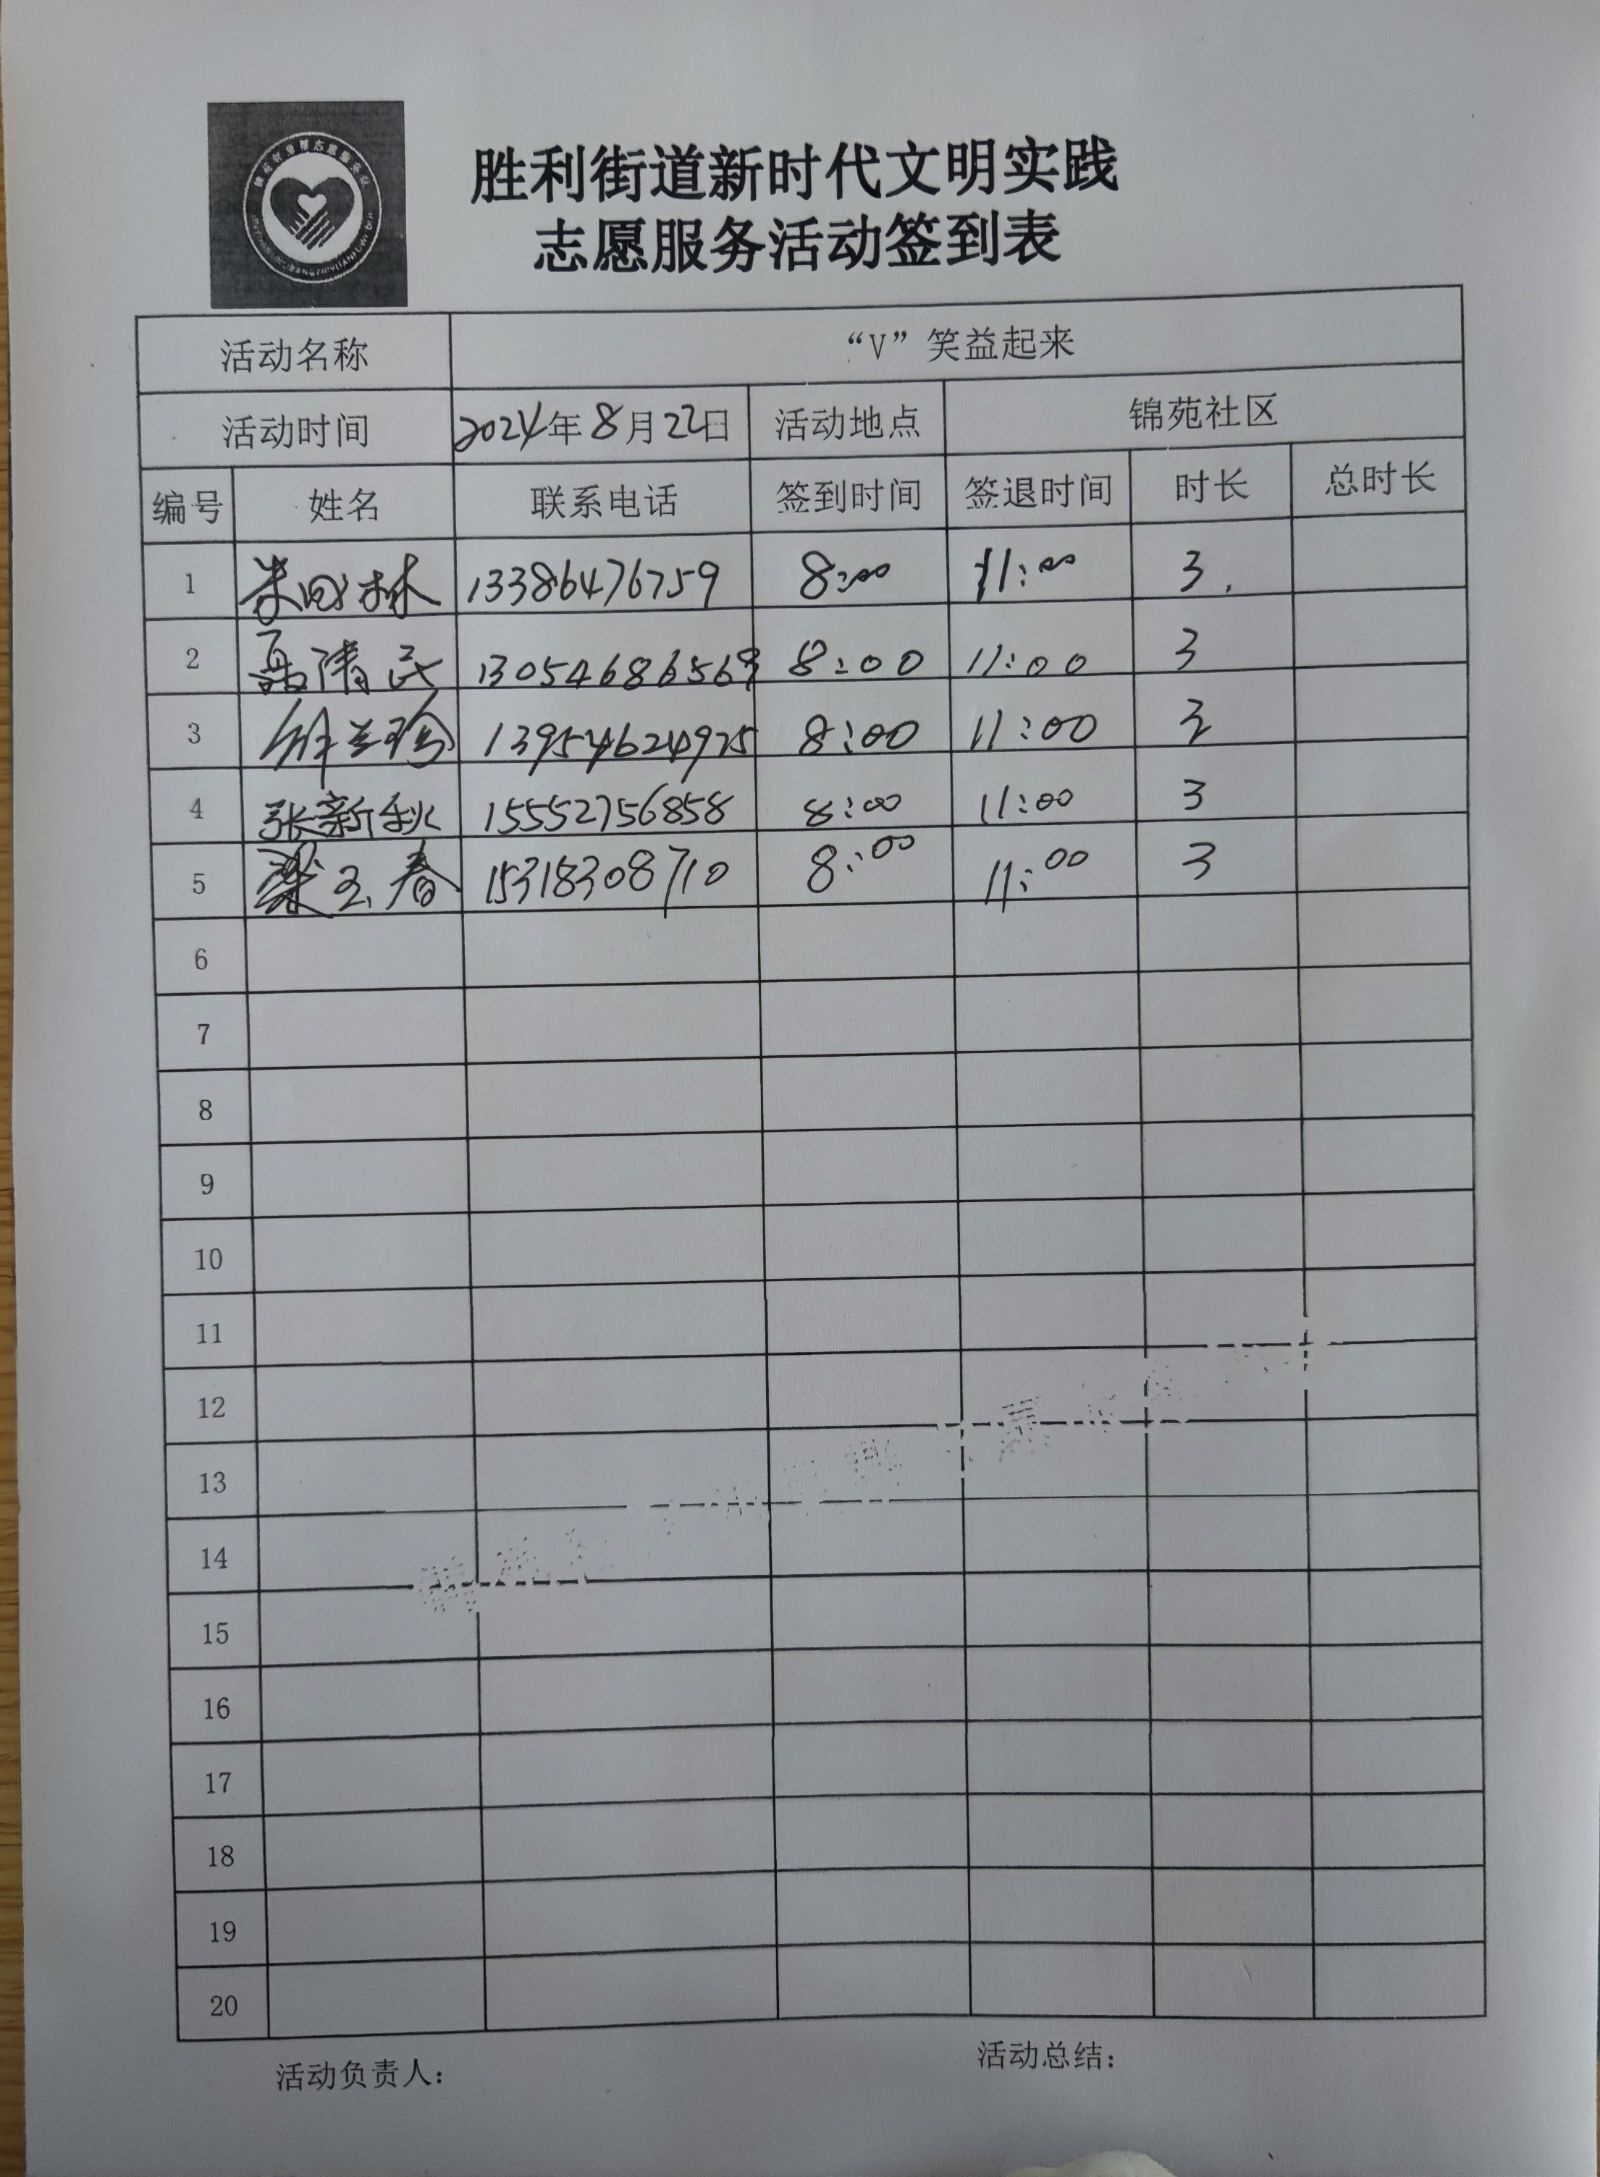 胜利街道新时代文明实践
志愿服务活动签到表
活动名称 “V”笑益起来
活动时间 2024年8月22日 活动地点 锦苑社区
编号 姓名 联系电话 签到时间 签退时间 时长 总时长
1 林 13386476759 8:00 11:00 3
2 聂清民 8:00 11:00 3
3 兰珍 13954624925 8:00 11:00 3
4 张新秋 15552756858 8:00 11:00 3
5 梁玉春 15318308710 8:00 11:00 3
6
7
8
9
10
11
12
13
14
15
16
17
18
19
20
活动负责人： 活动总结：